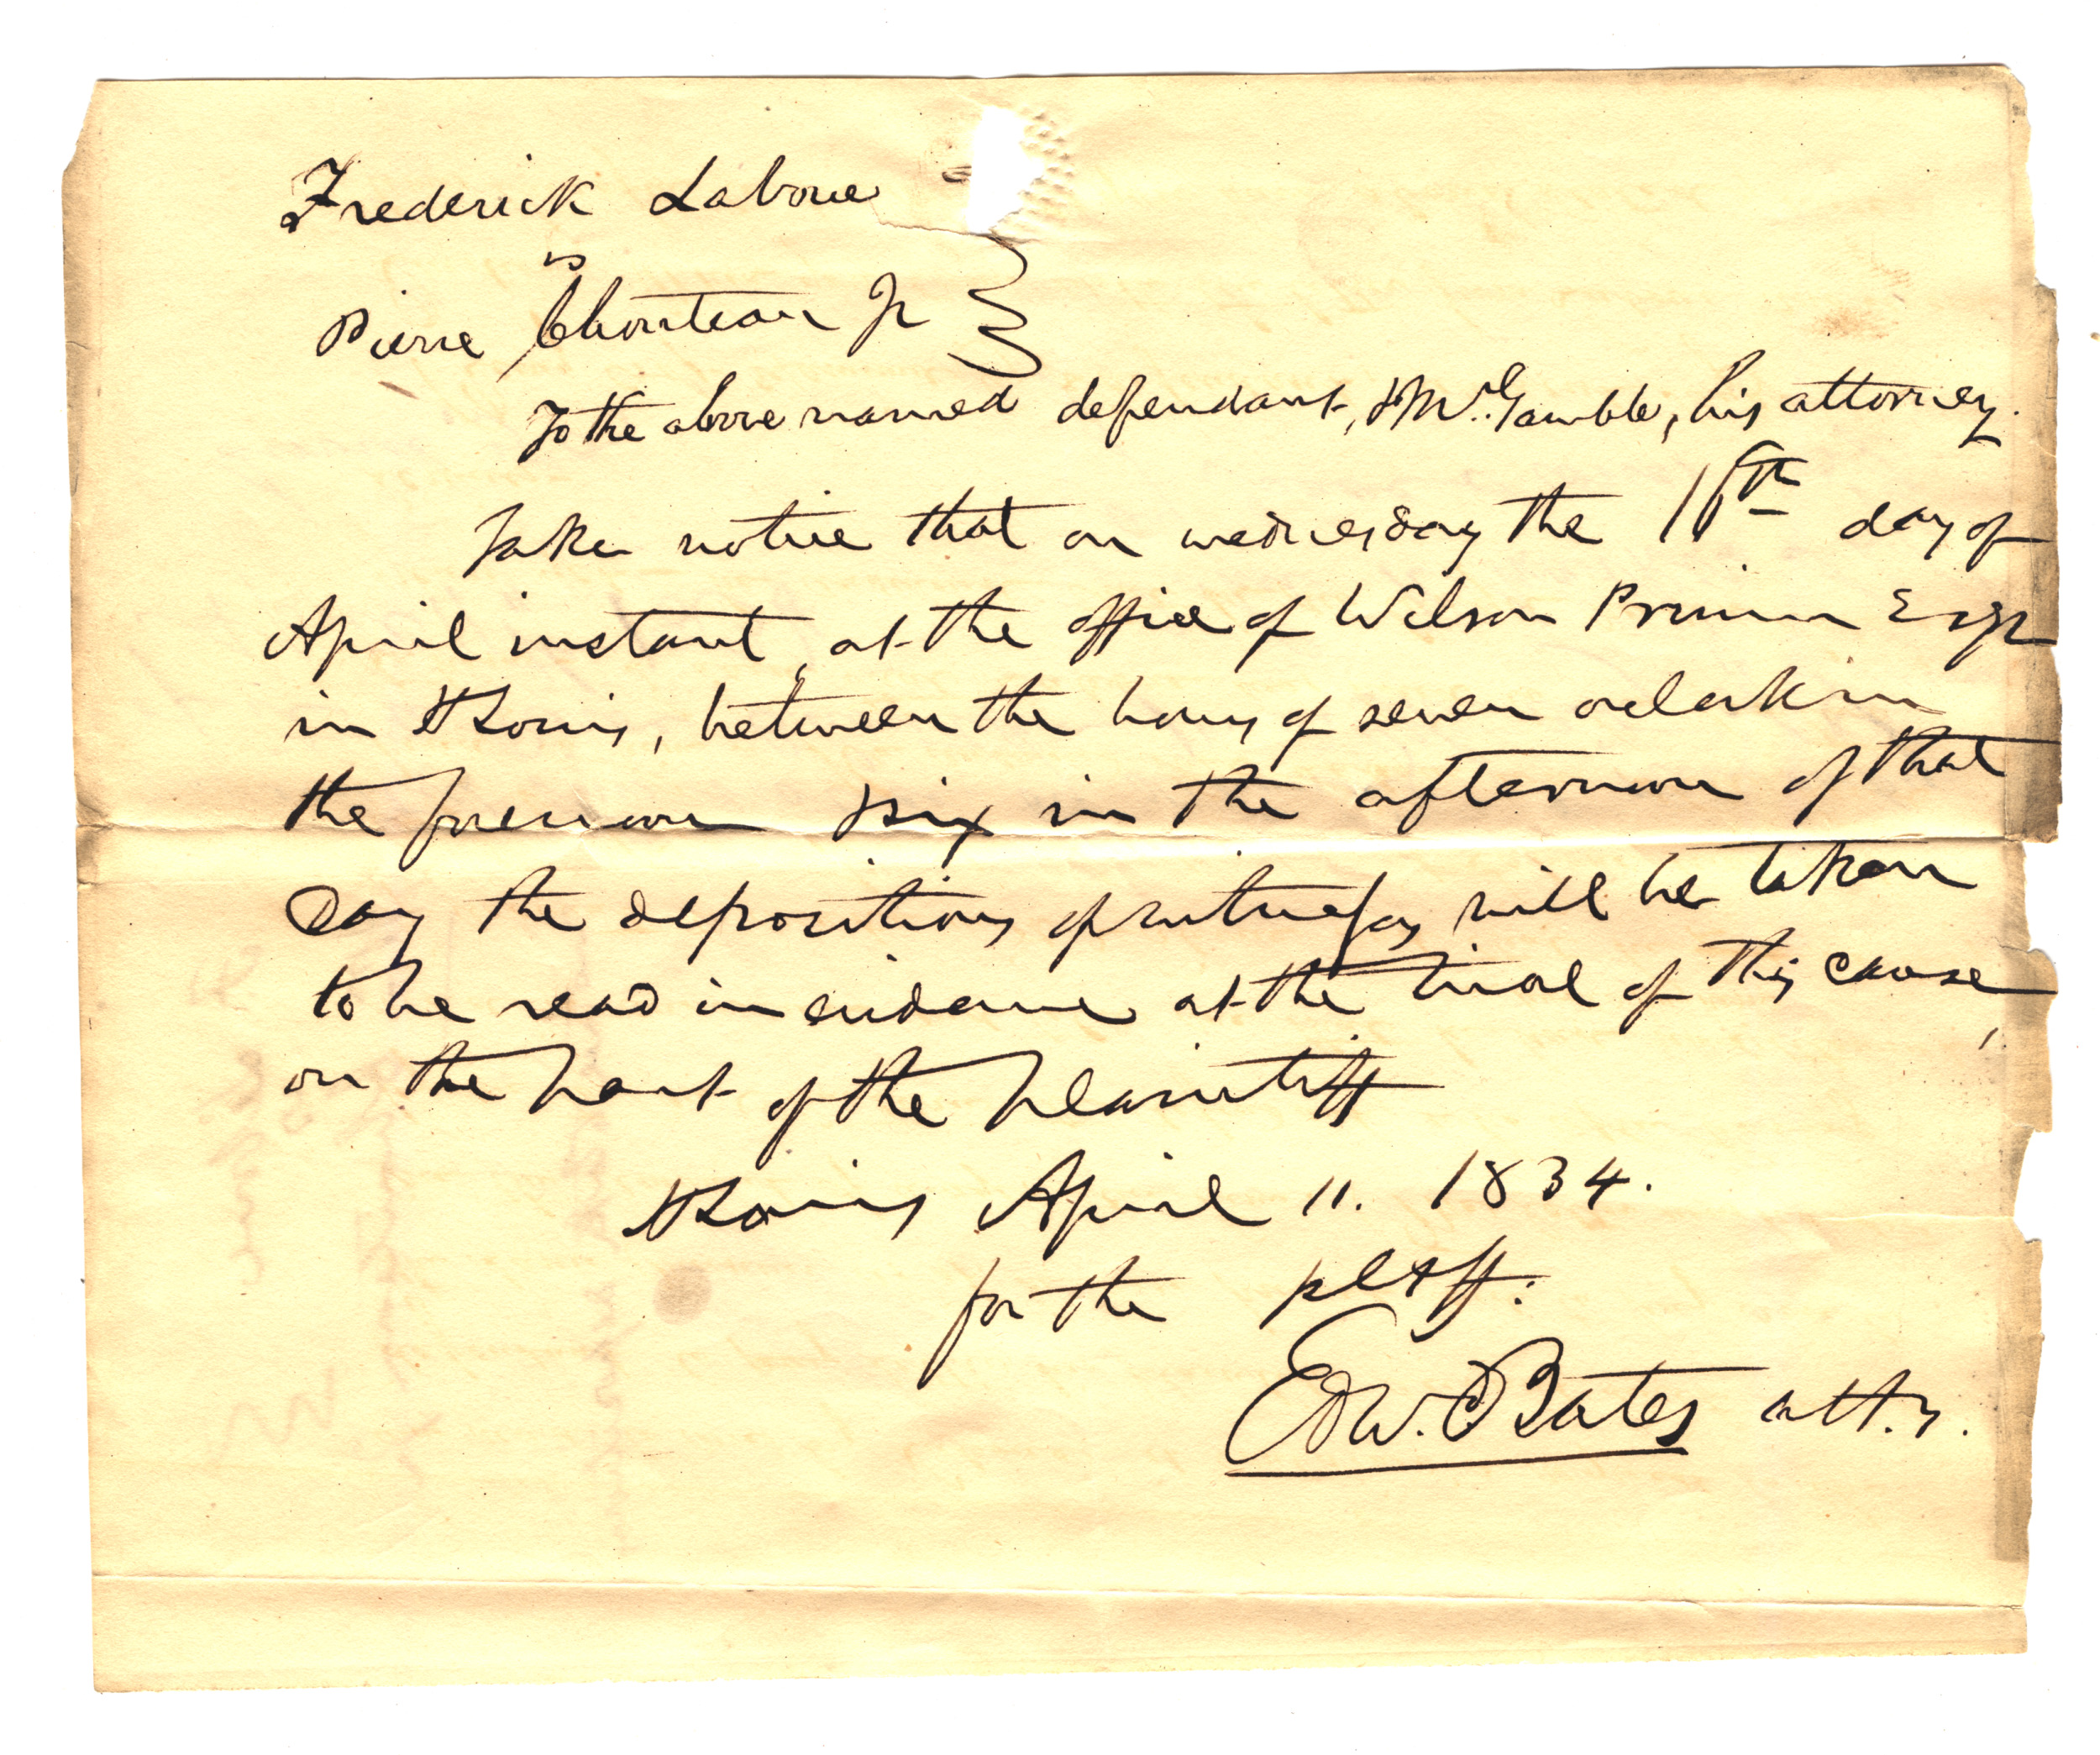 Frederick Laboue
vs
Pierre Chouteau Jr
To the above named defendant, & Mr. Gamble, his attorney.
Take notice that on wednesday the 16th day of
April instant, at the office of Wilson Primm Esqr
in St Louis, between the hours of seven oclock in
the forenoon & six in the afternoon of that
day the depositions of witnesses will be taken
to be read in evidence at the trial of this cause,
on the part of the plaintiff
St Louis April 11. 1834.
for the pltff:
Edw. Bates atty.